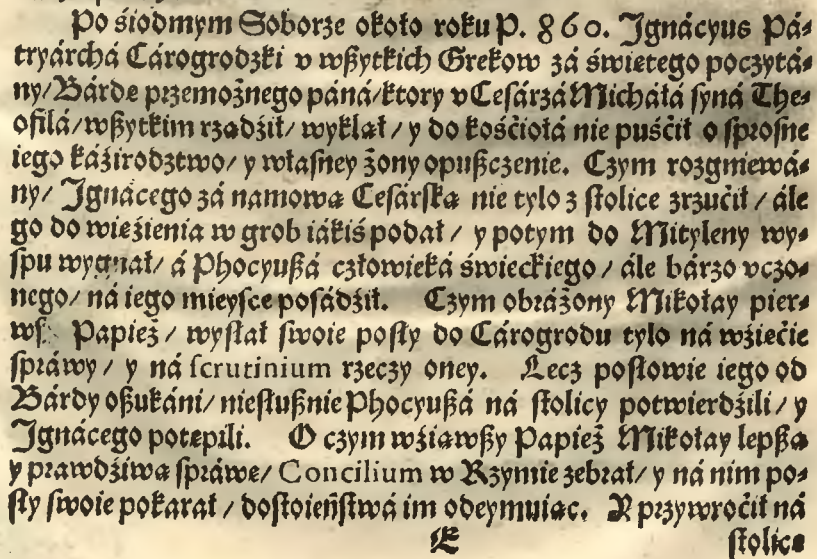 Po śiodmym Soborze około roku P. 860. Ignácyus Pá-
tryárchá Cárogrodzki v wßytkich Grekow zá świetego poczytá-
ny/ Bárdę przemożnego páná/ ktory v Cesárzá Micháłá syná The-
ofilá/ wßytkim rządźił/ wyklął/ y do kośćiołá nie puśćił o sprosne
iego káźirodztwo/ y własney żony opußczenie. Czym rozgniewá-
ny/ Ignácego zá namową Cesárską nie tylo z stolice zrzućił/ ále
go do więźienia w grob iákiś podał/ y potym do Mityleny wy-
spu wygnał/ á Phocyußá człowieká świeckiego/ ále bárzo vczo-
nego/ ná iego mieysce posádźił. Czym obráżony Mikołay pier-
Papież/ wysłał swoie posły do Cárogrodu tylo ná wźięćie
spráwy/ y ná scrutinium rzeczy oney. Lecz posłowie iego od
Bárdy oßukáni/ niesłußnie Phocyußá ná stolicy potwierdźili/ y
Ignácego potępili. O czym wźiąwßy Papież Mikołay lepßą
y prawdźiwą spráwę/ Concilium w Rzymie zebrał/ y ná nim po-
sły swoie pokarał/ dostoieństwá im odeymuiąc. Y przywroćił ná
E stolicę